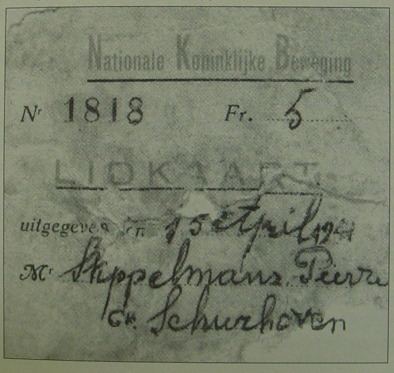 Nationale Koninklijke Beweging
Nr 1818 Fr. 5
LIDKAART
uitgegeven den 15 April
Mr Skppelmans Pierre
Schurhoven